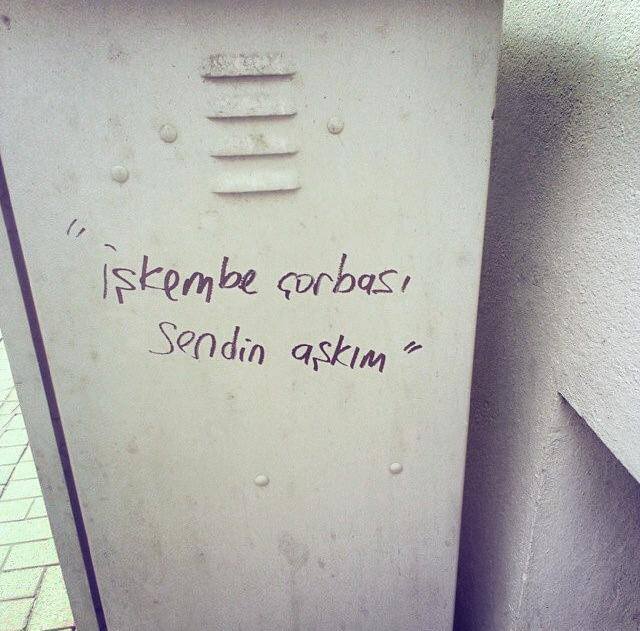 "işkembe çorbası
sendin aşkım"